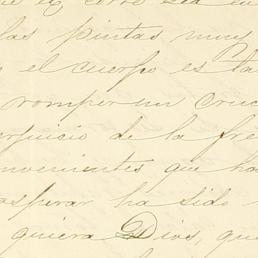 las pintas muy
el cuerpo es ta
romper un cruc
erjuicio de la fre
nvenientes que ha
osperar ha sido
quiera Dios, que